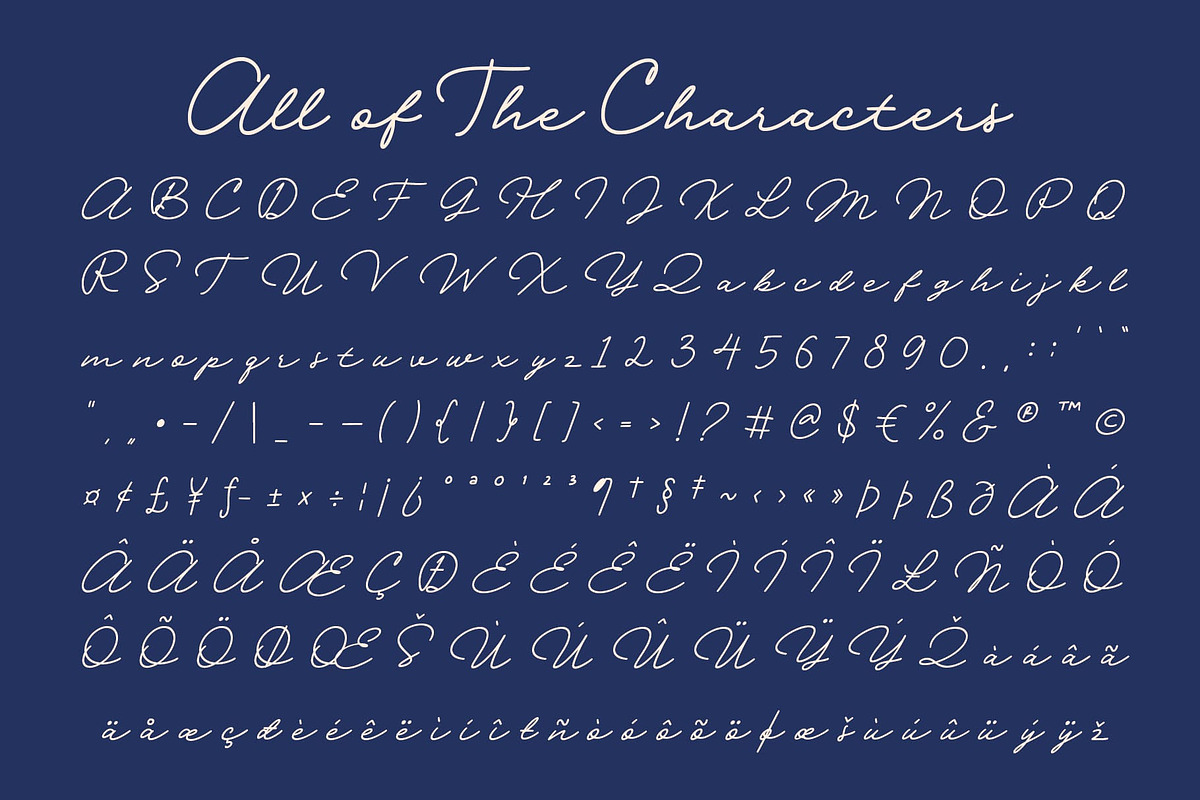 All of The Characters
A B C D E F G H I J K L M N O P Q
R S T U V W X Y Z a b c d e f g h i j k l
m n o p q r s t u v w x y z 1 2 3 4 5 6 7 8 9 0 . , : ; ' ‘ “
" ‚ „ • - / | _ – — ( ) { | } [ ] < = > ! ? # @ $ € % & ® ™ ©
¤ ¢ £ ¥ ƒ - ± × ÷ ¦ ¡ ¿ ° ª º ¹ ² ³ ¶ † § ‡ ~ ‹ › « » Þ þ ß ð À Á
 Ä Å Æ Ç Đ È É Ê Ë Ì Í Î Ï Ł Ñ Ò Ó
Ô Õ Ö Ø Œ Š Ù Ú Û Ü Ÿ Ý Ž à á â ã
ä å æ ç đ è é ê ë ì í î ł ñ ò ó ô õ ö ø œ š ù ú û ü ý ÿ ž